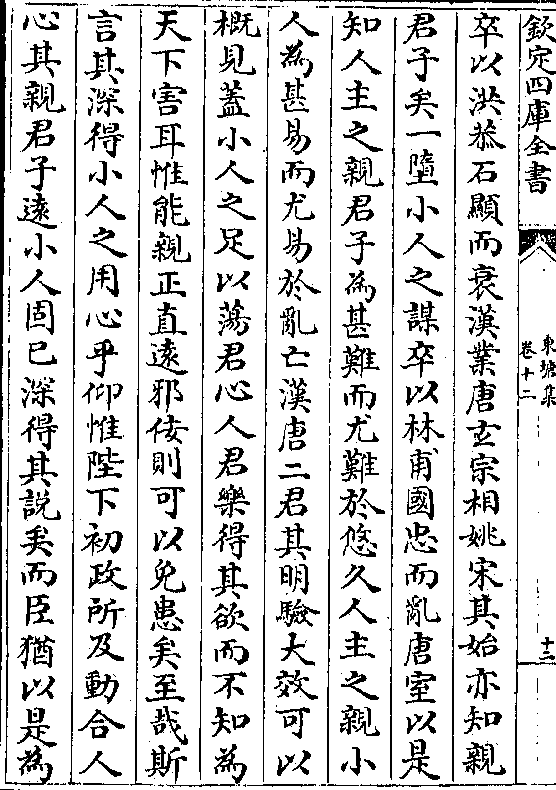 欽定四庫全書
東塘集
卷十二
十二
卒以洪恭石顯而衰漢業唐玄宗相姚宋其始亦知親
君子矣一墮小人之謀卒以林甫國忠而亂唐室以是
知人主之親君子為甚難而尤難於悠久人主之親小
人為甚易而尤易於亂亡漢唐二君其明驗大效可以
概見蓋小人之足以蕩君心人君樂得其欲而不知為
天下害耳惟能親正直遠邪佞則可以免患矣至哉斯
言其深得小人之用心乎仰惟陛下初政所及動合人
心其親君子遠小人固已深得其説矣而臣猶以是為